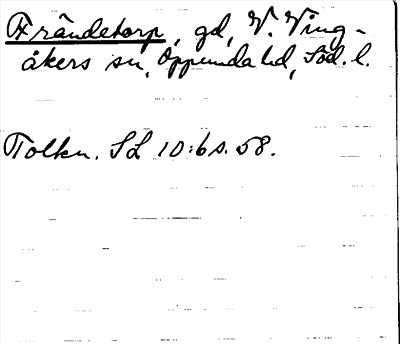 Frändetorp, gd, V. Ving-
åkers sn, Oppunda hd, Söd. l.
Tolkn. SL 10:6 s. 58.